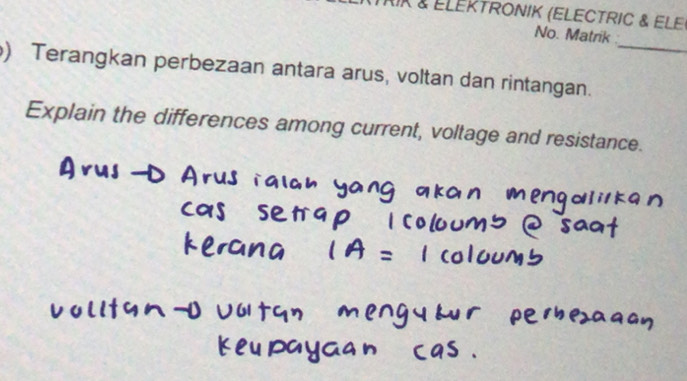 & ELEKTRONIK (ELECTRIC & ELE
No. Matrik :
) Terangkan perbezaan antara arus, voltan dan rintangan.
Explain the differences among current, voltage and resistance.
Arus → Arus ialah yang akan mengalirkan
cas setiap 1 coloumb @ saat
kerana 1A = 1 coloumb
volltan → voltan mengukur perbezaaan
keupayaan cas.